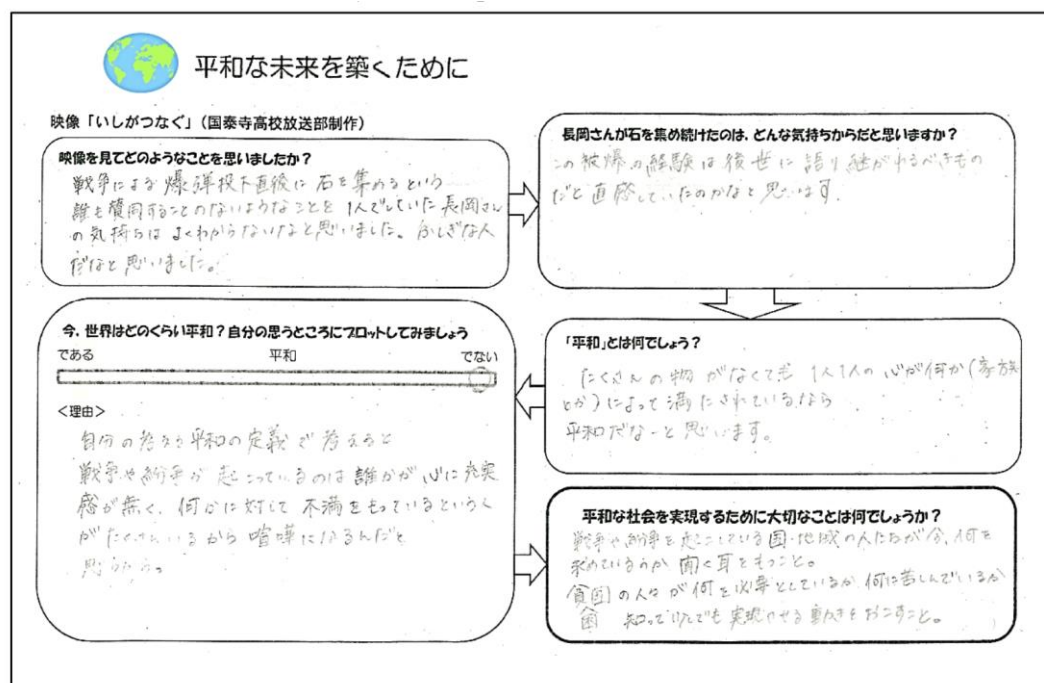 平和な未来を築くために
映像「いしがつなぐ」(国泰寺高校放送部制作)
映像を見てどのようなことを思いましたか?
戦争による爆弾投下直後に石を集めるという
誰も賛同することのないようなことを1人でしていた長岡さん
の気持ちはよくわからないなと思いました。ふしぎな人
だなと思いました。
長岡さんが石を集め続けたのは、どんな気持ちからだと思いますか?
この被爆の経験は後世に語り継がれるべきもの
だと直感していたのかなと思います。
「平和」とは何でしょう?
たくさんの物がなくても1人1人の心が何か(家族
とか)によって満たされているなら
平和だなーと思います。
今、世界はどのくらい平和?自分の思うところにプロットしてみましょう
である 平和 でない
<理由>
自分の考える平和の定義で考えると
戦争や紛争が起こっているのは誰かが心に充実
感が無く、何かに対して不満をもっているという
がたくさんいるから喧嘩になるんだと
思うから。
平和な社会を実現するために大切なことは何でしょうか?
戦争や紛争を起こしている国・地域の人たちが今、何を
求めているのか聞く耳をもつこと。
貧困の人々が何を必要としているか、何に苦しんでいるか
困 知って 実現させる動きをおこすこと。